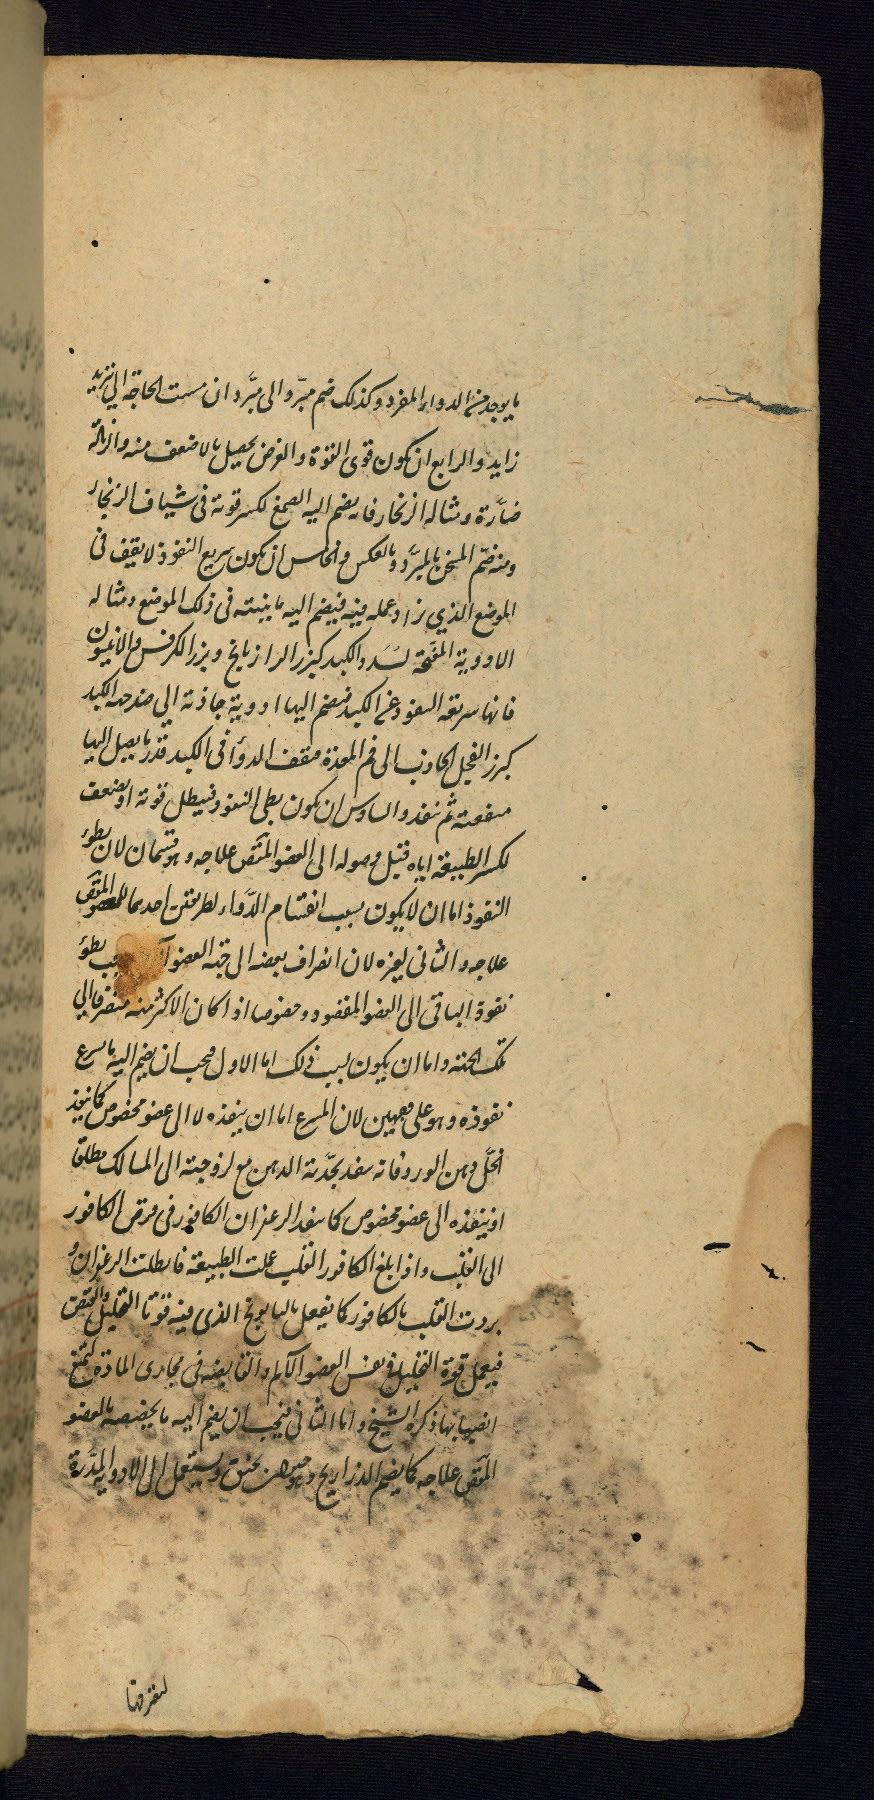 ما يوجد من الدواء المفرد وكذلك ضم مبرد الى مبرد ان مست الحاجة الى تبريد
زايد والرابع ان يكون قوى القوة والغرض يحصل بالاضعف منه وازالة
ضارة ومثاله الزنجار فانه يضم اليه الصمغ لكسر قوته فى شياف الزنجار
ومنه ضم المسخن بالمبرد وبالعكس والخامس ان يكون سريع النفوذ لا يقف فى
الموضع الذي زاد عمله فيه فيضم اليه ما يثبته فى ذلك الموضع ومثاله
الادوية المفتحة لسدد الكبد كبزر الرازيانج وبزر الكرفس والافتيون
فانها سريعة النفوذ عن الكبد فيضم اليها ادوية جاذبة الي ضد جهة الكبد
كبزر الفجل الجاذب الى فم المعدة فيقف الدواء فى الكبد قدر ما يصل اليها
منفعته ثم ينفذ والسادس ان يكون بطى النفوذ فيبطل قوته او يضعف
لكسر الطبيعة اياه قبل وصوله الى العضو علاجه وهو قسمان لان بطوء
النفوذ اما ان لا يكون بسبب انقسام الدواء لطريقين احدهما للعضو
علاجه والثانى لغيره لان انصراف بعضه الى جنبة العضو بطوء
نفوذ الباقى الى العضو المقصود وخصوصا اذا كان الاكثر منه منصرفا الي
تلك الجنبة واما ان يكون بسبب ذلك اما الاول فيجب ان يضم اليه ما يسرع
نفوذه وهو على وجهين لان المسرع اما ان ينفذه لا الى عضو مخصوص كما ينفذ
الخل دهن الورد فانه ينفذ بحدته الدهن مع لزوجته الى المسالك مطلقا
او ينفذه الى عضو مخصوص كما ينفذ الزعفران الكافور فى قرص الكافور
الى القلب واذا بلغ الكافور القلب عملت الطبيعة فابطلت الزعفران و
بردت القلب بالكافور كما يفعل بالبابونج الذى فيه قوتا التحليل والقبض
فيعمل قوة التحليل فى نفس العضو الآلم والقابضة فى مجارى المادة لتمنع
انصبابها ذكره الشيخ واما الثانى فيجب ان يضم اليه ما يخصصه بالعضو
علاجه كما يضم الذراريح وهو حيوان يخنق ويستعمل الى الادوية المدرة